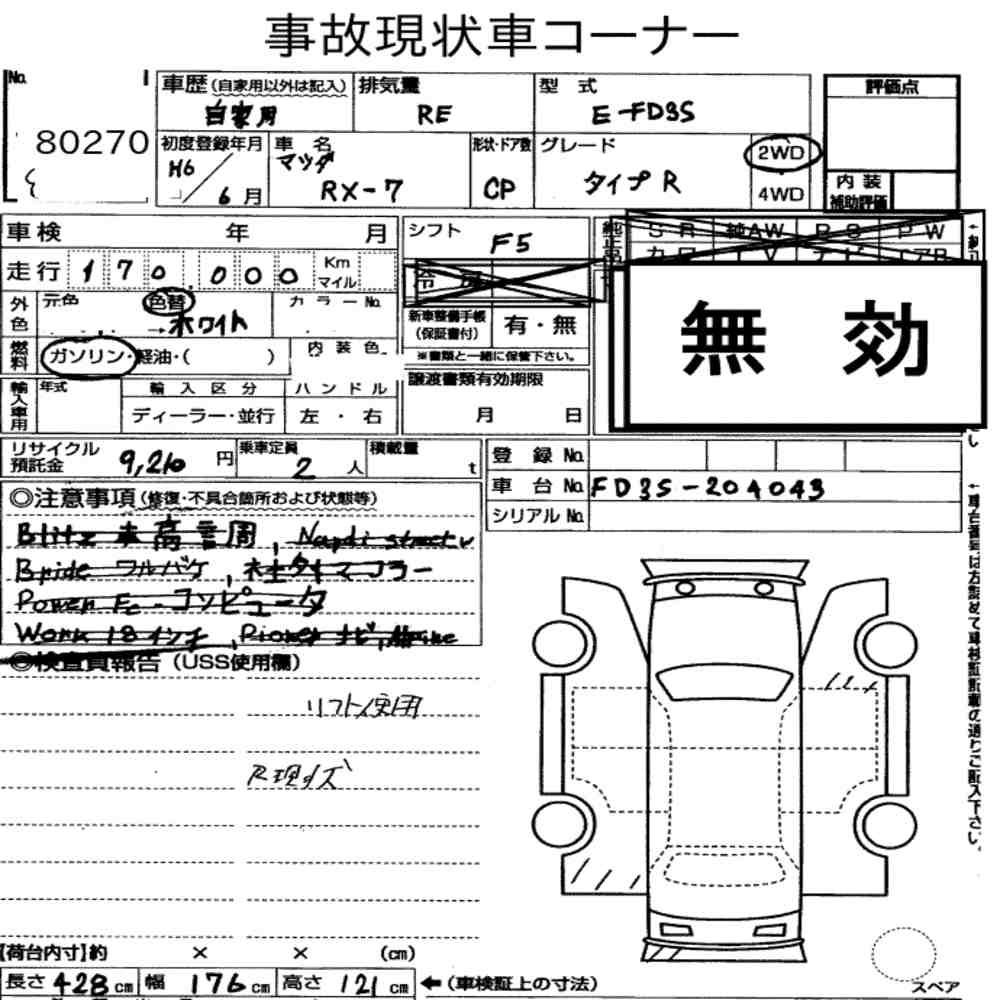 事故現状車コーナー
No. 80270
車歴 (自家用以外は記入) 自家用
排気量 RE
型式 E-FD3S
評価点
初度登録年月 H6 / 6月
車名 マツダ RX-7
形状・ドア数 CP
グレード タイプR
2WD
4WD
内装
補助評価
車検 年 月
シフト F5
純正品 SR 純AW PS PW
走行 170,000 Km マイル
冷房
外色 元色 色替 →ホワイト
カラーNo.
新車整備手帳 (保証書付) 有・無
※書類と一緒に保管下さい。
無効
燃料 ガソリン・軽油・( )
内装色
譲渡書類有効期限
月 日
輸入車用 年式 輸入区分 ハンドル
ディーラー・並行 左・右
リサイクル預託金 9,210円
乗車定員 2人
積載量 t
登録No.
車台No. FD3S-204043
シリアルNo.
◎注意事項 (修復・不具合箇所および状態等)
Blitz 車高調,
Bride フルバケ, 社タイマコラー
Power Fc-コンピュータ
Work 18インチ, Pioneer ナビ,
◎検査員報告 (USS使用欄)
リフト使用
R理キズ
←車台番号は左詰めで車検証記載の通りご記入下さい。
【荷台内寸】約 × × (cm)
長さ 428cm 幅 176cm 高さ 121cm ←(車検証上の寸法)
スペア